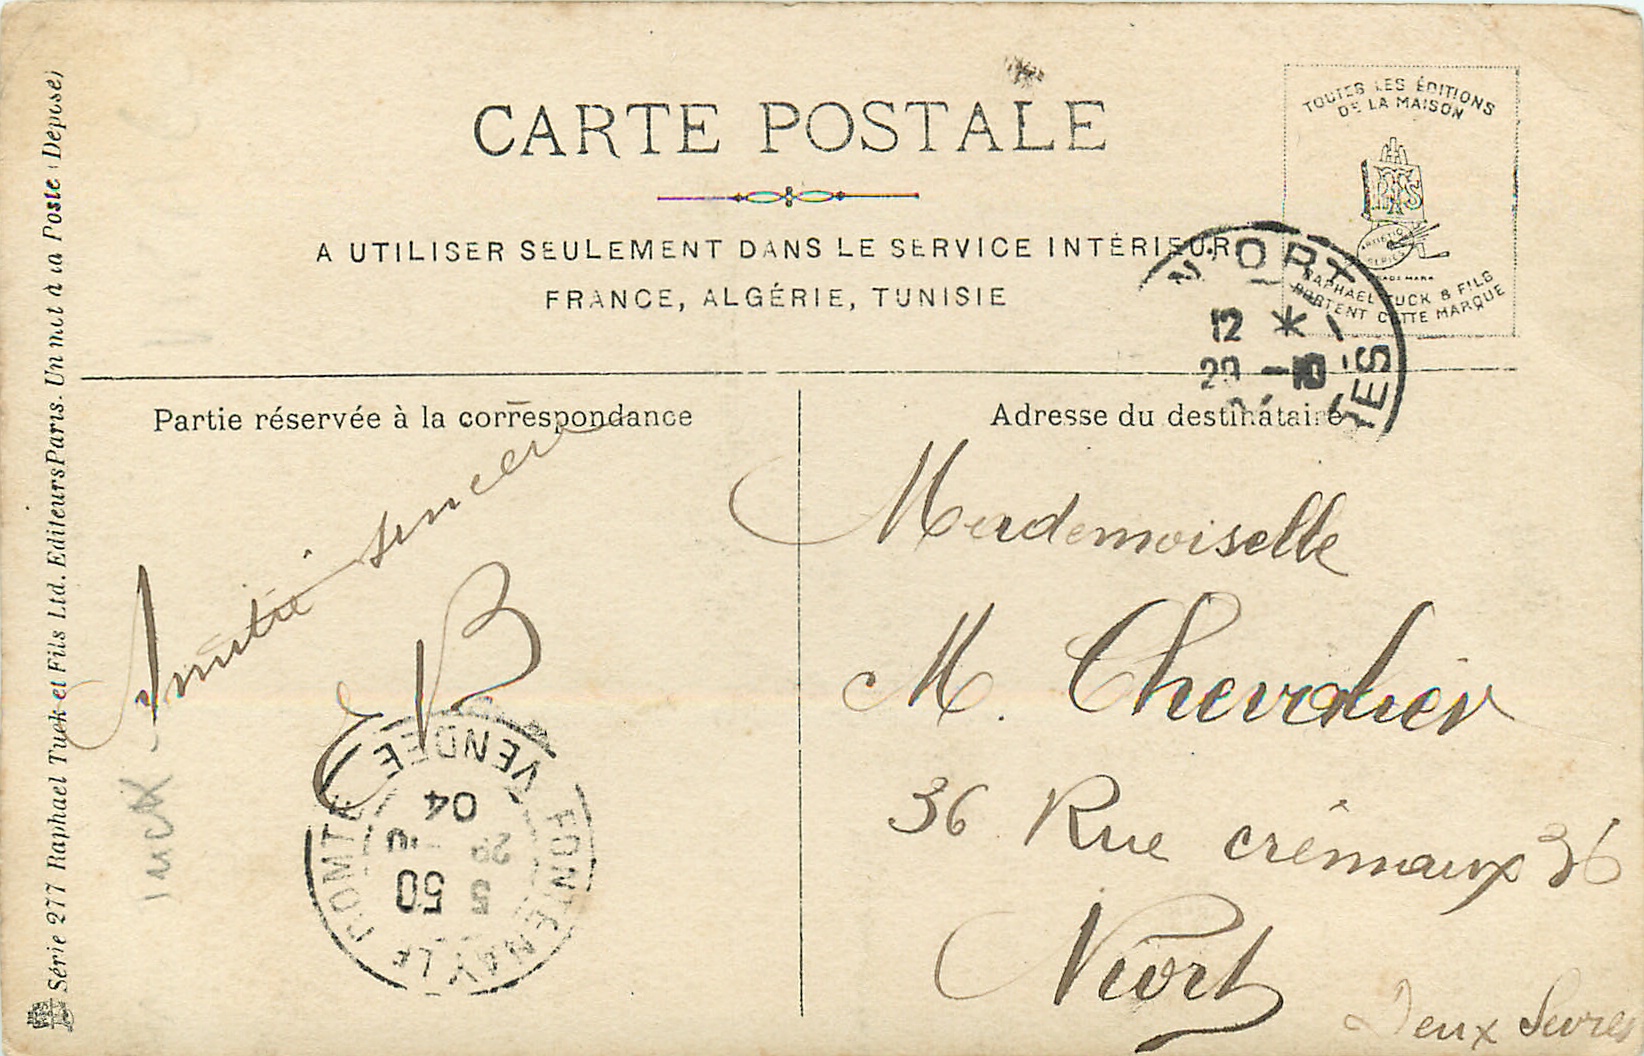 CARTE POSTALE
A UTILISER SEULEMENT DANS LE SERVICE INTÉRIEUR
FRANCE, ALGÉRIE, TUNISIE
TOUTES LES ÉDITIONS
DE LA MAISON
ARTISTIC
SERIES
TRADE MARK
RAPHAEL TUCK & FILS
PORTENT CETTE MARQUE
NIORT
12 *
29 -10
Partie réservée à la correspondance
Amitié sincère
EB
FONTENAY LE COMTE
VENDÉE
5 50
04
Adresse du destinataire
Mademoiselle
M. Chevalier
36 Rue crémaux 36
Niort
Deux Sevres
Série 277 Raphael Tuck et Fils Ltd. Editeurs Paris. Un mot à la Poste (Déposé)